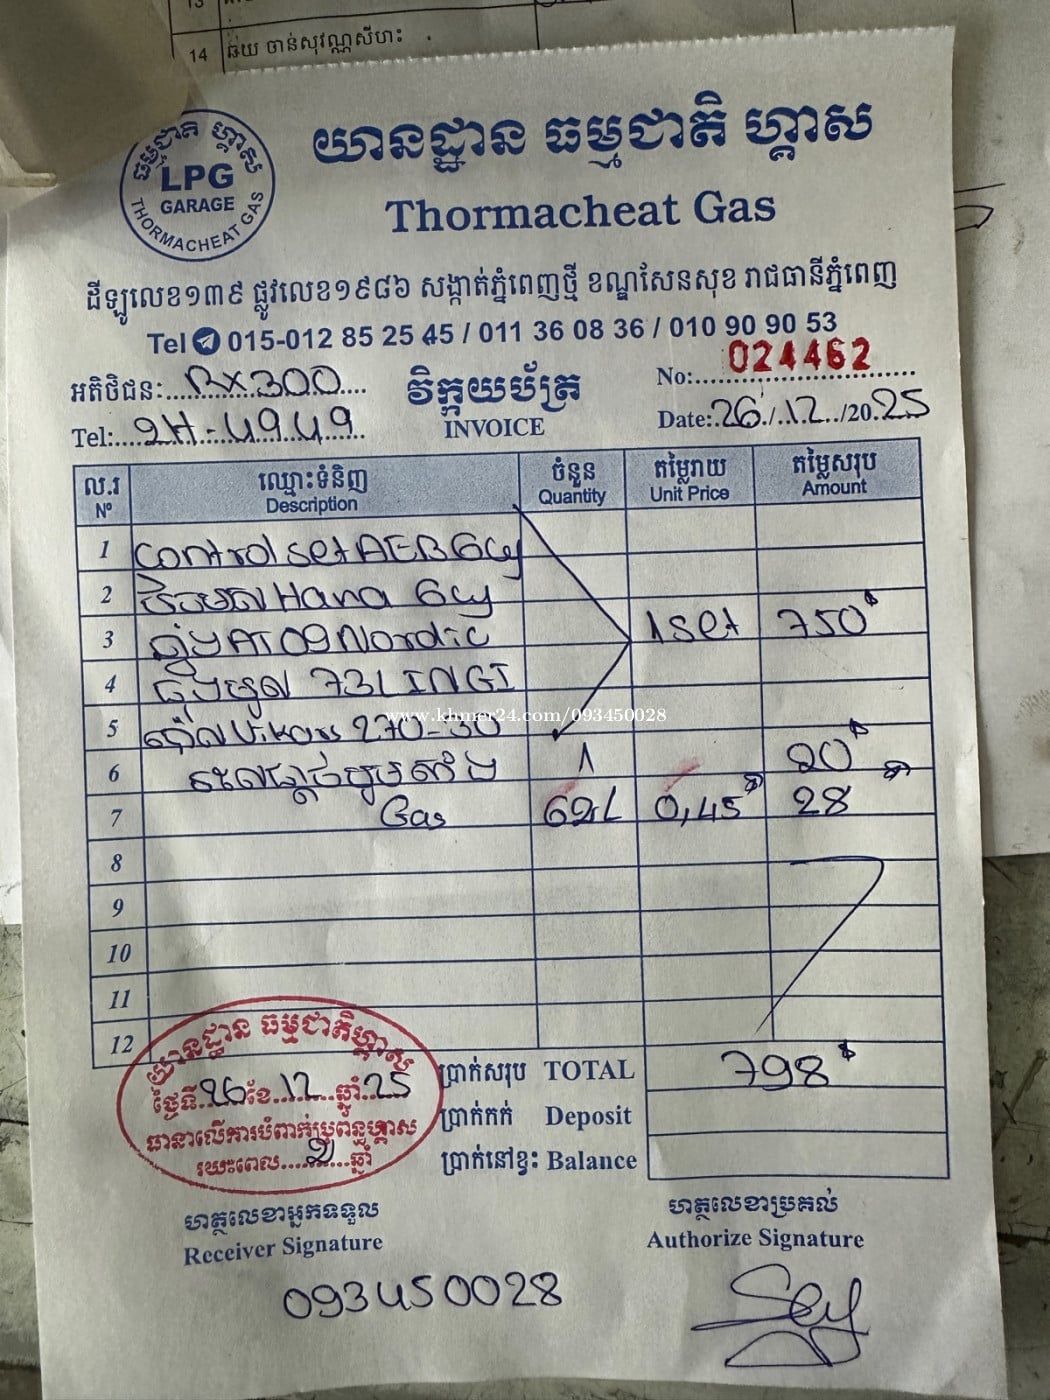 13
14 ឆ័យ ចាន់សុវណ្ណសីហះ
ធម្មជាតិ ហ្គាស
LPG
GARAGE
THORMACHEAT GAS
យានដ្ឋាន ធម្មជាតិ ហ្គាស
Thormacheat Gas
ដីឡូលេខ១៣៩ ផ្លូវលេខ១៩៨៦ សង្កាត់ភ្នំពេញថ្មី ខណ្ឌសែនសុខ រាជធានីភ្នំពេញ
Tel 015-012 85 25 45 / 011 36 08 36 / 010 90 90 53
អតិថិជនៈ RX300 វិក្កយបត្រ No: 024462
Tel: 2H-4949 INVOICE Date: 26/12/2025
ល.រ ឈ្មោះទំនិញ ចំនួន តម្លៃរាយ តម្លៃសរុប
Nº Description Quantity Unit Price Amount
1 Control set AEB 6cy
2 Hana 6cy
3 AT09 Nordic 1set 750$
4 73L INGI
5 270-30
www.khmer24.com/093450028
6 1 20$
7 Gas 62L 0,45$ 28$
8
9
10
11
12
ប្រាក់សរុប TOTAL 798$
ប្រាក់កក់ Deposit
ប្រាក់នៅខ្វះ Balance
យានដ្ឋាន ធម្មជាតិហ្គាស
ថ្ងៃទី 26 ខែ 12 ឆ្នាំ 25
ធានាលើការបំពាក់ប្រព័ន្ធហ្គាស
រយះពេល 2 ឆ្នាំ
ហត្ថលេខាអ្នកទទួល ហត្ថលេខាប្រគល់
Receiver Signature Authorize Signature
093450028